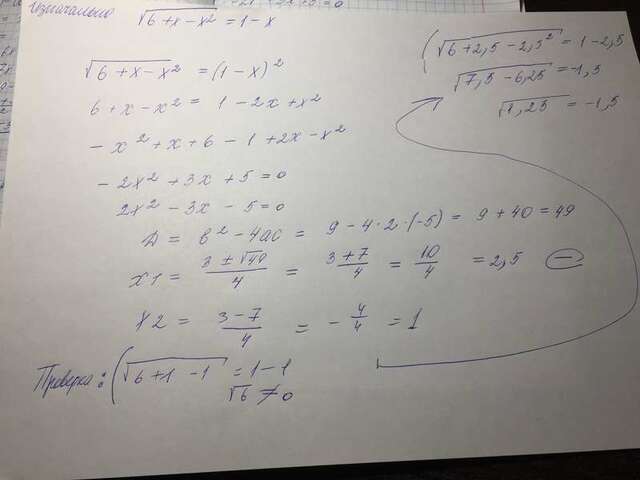 Изначально √6+x-x² = 1-x
√6+x-x² = (1-x)²
6+x-x² = 1-2x+x²
-x²+x+6-1+2x-x²
-2x²+3x+5=0
2x²-3x-5=0
D = b²-4ac = 9-4·2·(-5) = 9+40=49
x1 = 3±√49/4 = 3+7/4 = 10/4 = 2,5 (-)
x2 = 3-7/4 = -4/4 = 1
Проверка: (√6+1-1 = 1-1
√6 ≠ 0
(√6+2,5-2,5² = 1-2,5
√7,5-6,25 = -1,5
√1,25 = -1,5